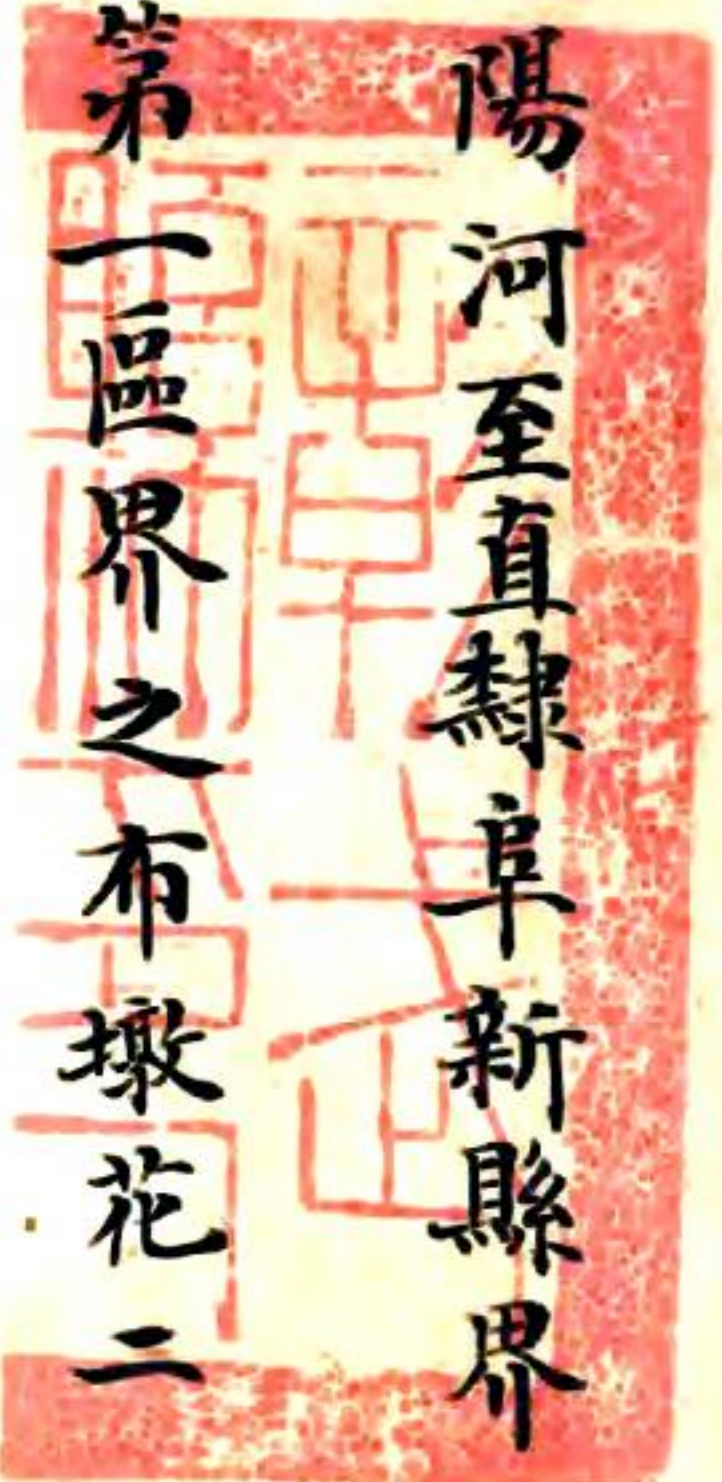 陽河至直隸阜新縣界
第一區界之布墩花二